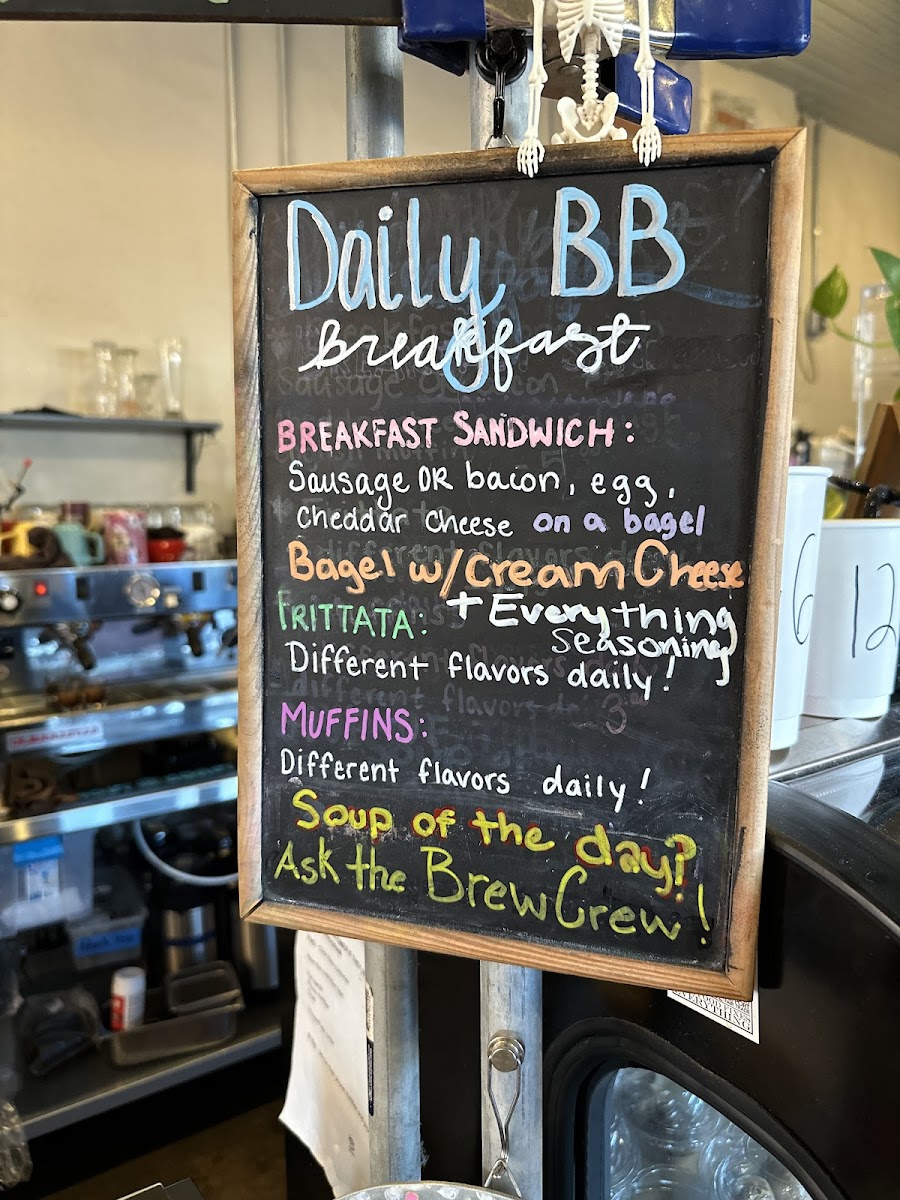 Daily BB
breakfast
BREAKFAST SANDWICH:
Sausage OR bacon, egg,
Cheddar Cheese on a bagel
Bagel w/ Cream Cheese
+ Everything
Seasoning
FRITTATA:
Different flavors daily!
MUFFINS:
Different flavors daily!
Soup of the day?
Ask the Brew Crew!
6
12